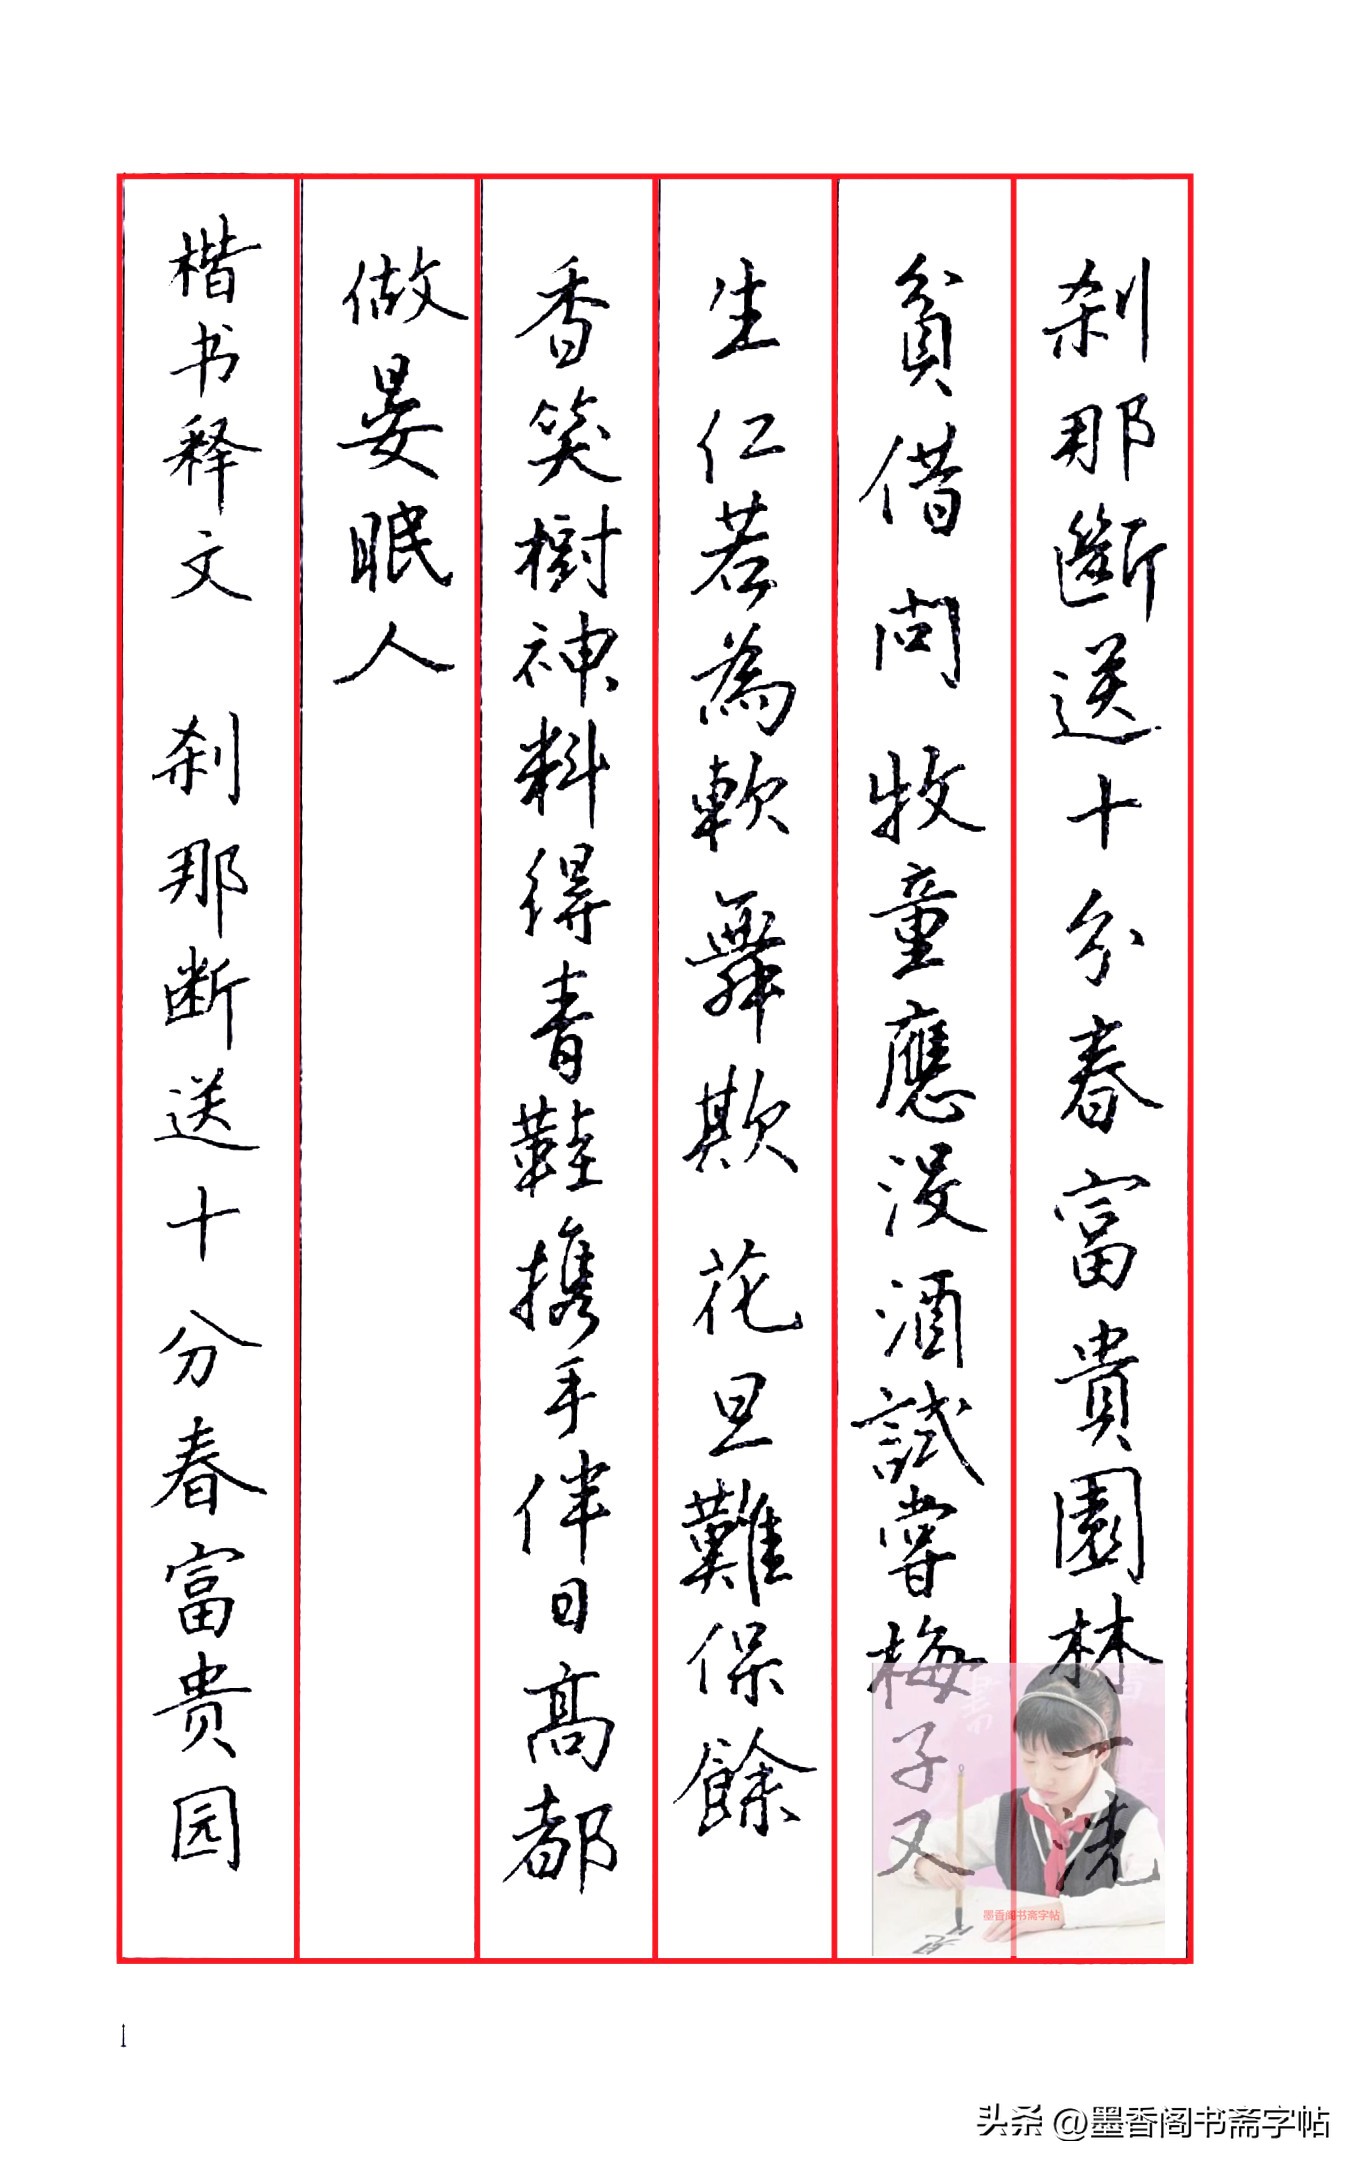 刹那斷送十分春富貴園林一洗
貧借问牧童應没酒試嘗梅子又
生仁若為軟舞欺花旦難保餘
香笑樹神料得青鞋攜手伴日高都
做晏眠人
楷书释文 刹那断送十分春富贵园
墨香阁书斋字帖
1
头条 @墨香阁书斋字帖